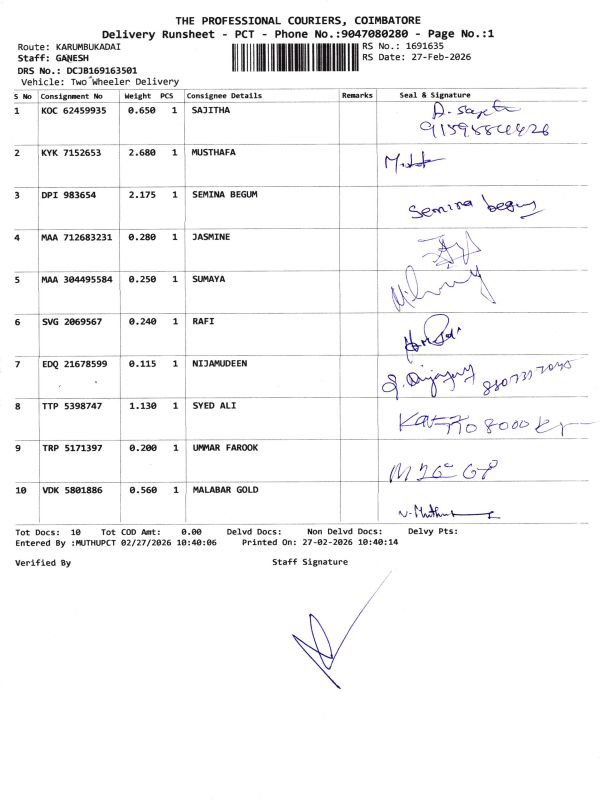 THE PROFESSIONAL COURIERS, COIMBATORE
Delivery Runsheet - PCT - Phone No.:9047080280 - Page No.:1
Route: KARUMBUKADAI RS No.: 1691635
Staff: GANESH RS Date: 27-Feb-2026
DRS No.: DCJB169163501
Vehicle: Two Wheeler Delivery
S No Consignment No Weight PCS Consignee Details Remarks Seal & Signature
1 KOC 62459935 0.650 1 SAJITHA
2 KYK 7152653 2.680 1 MUSTHAFA
3 DPI 983654 2.175 1 SEMINA BEGUM Semina begum
4 MAA 712683231 0.280 1 JASMINE
5 MAA 304495584 0.250 1 SUMAYA
6 SVG 2069567 0.240 1 RAFI
7 EDQ 21678599 0.115 1 NIJAMUDEEN
8 TTP 5398747 1.130 1 SYED ALI
9 TRP 5171397 0.200 1 UMMAR FAROOK
10 VDK 5801886 0.560 1 MALABAR GOLD
Tot Docs: 10 Tot COD Amt: 0.00 Delvd Docs: Non Delvd Docs: Delvy Pts:
Entered By :MUTHUPCT 02/27/2026 10:40:06 Printed On: 27-02-2026 10:40:14
Verified By Staff Signature